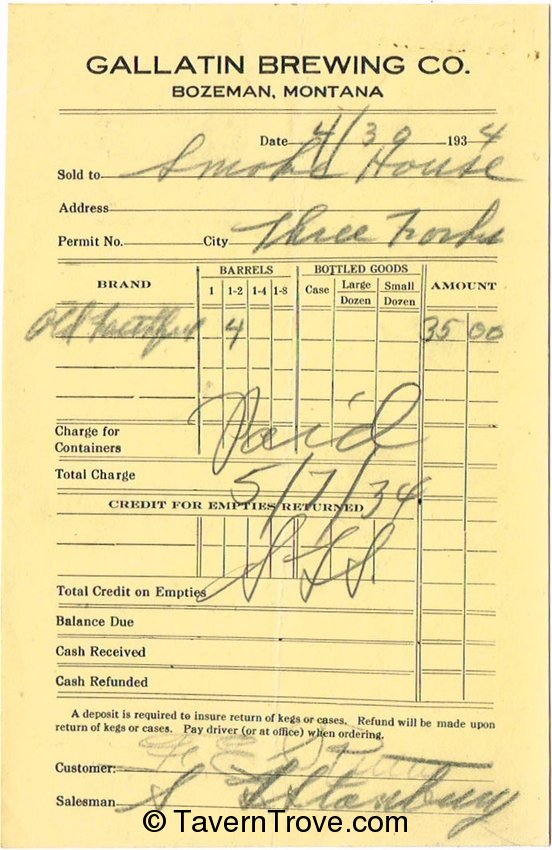 GALLATIN BREWING CO.
BOZEMAN, MONTANA
Date 4/30 1934
Sold to Smoke House
Address
Permit No. City Three Forks
BRAND BARRELS BOTTLED GOODS AMOUNT
1 1-2 1-4 1-8 Case Large Dozen Small Dozen
Old Faithful 4 35 00
Charge for Containers
Paid
Total Charge
5/7/34
CREDIT FOR EMPTIES RETURNED
Total Credit on Empties
Balance Due
Cash Received
Cash Refunded
A deposit is required to insure return of kegs or cases. Refund will be made upon
return of kegs or cases. Pay driver (or at office) when ordering.
Customer:
Salesman
© TavernTrove.com